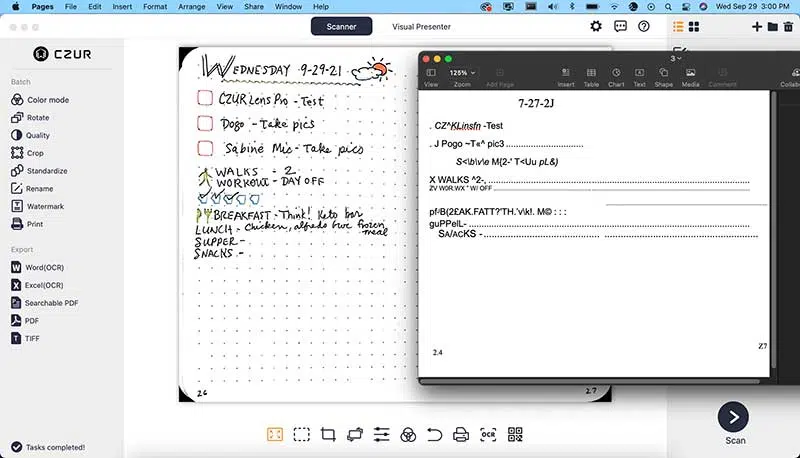 Pages File Edit Insert Format Arrange View Share Window Help
Wed Sep 29 3:00 PM
Scanner Visual Presenter
CZUR
Batch
Color mode
Rotate
Quality
Crop
Standardize
Rename
Watermark
Print
Export
Word(OCR)
Excel(OCR)
Searchable PDF
PDF
TIFF
Tasks completed!
WEDNESDAY 9-29-21
CZUR Lens Pro - Test
Dogo - Take pics
Sabine Mic - Take pics
WALKS - 2
WORKOUT - DAY OFF
BREAKFAST - Think! Keto bar
LUNCH - Chicken, alfredo broc frozen meal
SUPPER -
SNACKS -
26 27
3
125%
View Zoom Add Page Insert Table Chart Text Shape Media Comment Collabo
7-27-2J
. CZ^KLinsfn -Test
. J Pogo ~T«^ pic3
S<\b\v\e M{2-' T<Uu pL&)
X WALKS ^2-,
ZV W0R.WX " W/ OFF
pf^B(2£AK.FATT?'TH.'v\k!. M© : : :
guPPelL-
SA/ACKS -
2.4 Z7
OCR
Scan